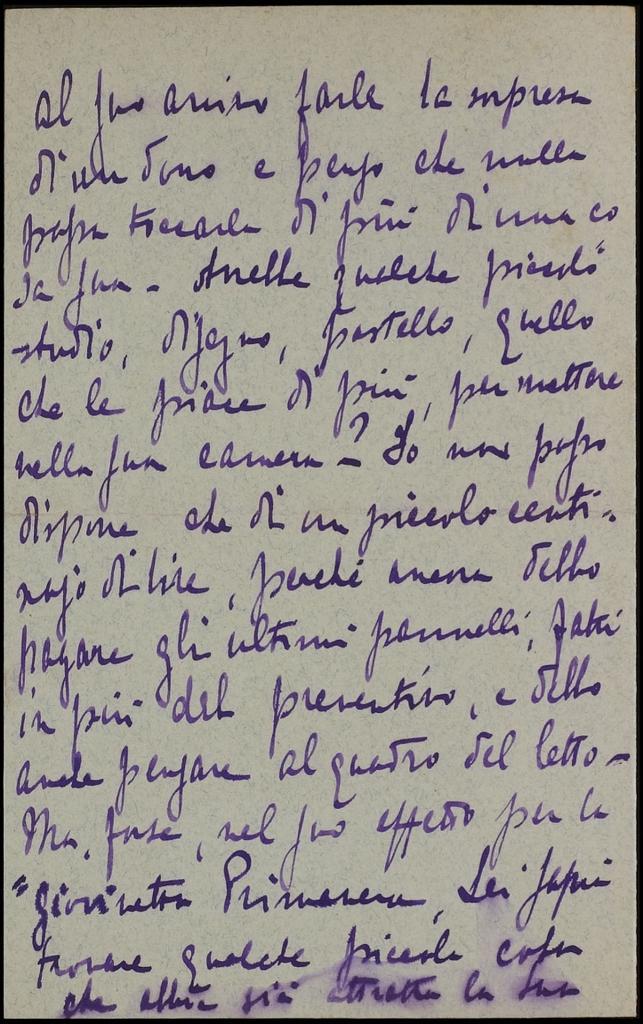 al suo arrivo farle la sorpresa
di un dono e penso che nulla
possa toccarla di più di una co
sa sua - Avrebbe qualche piccolo
studio, disegno, pastello, quello
che le piace di più, per mettere
nella sua camera - ? Io non posso
disporre che di un piccolo centi-
najo di lire, perché ancora debbo
pagare gli ultimi pannelli, fatti
in più del preventivo, e debbo
anche pensare al quadro del letto -
Ma, forse, nel suo affetto per la
"giovinetta Primavera, Lei saprà
trovare qualche piccola cosa
che abbia già attratta la sua